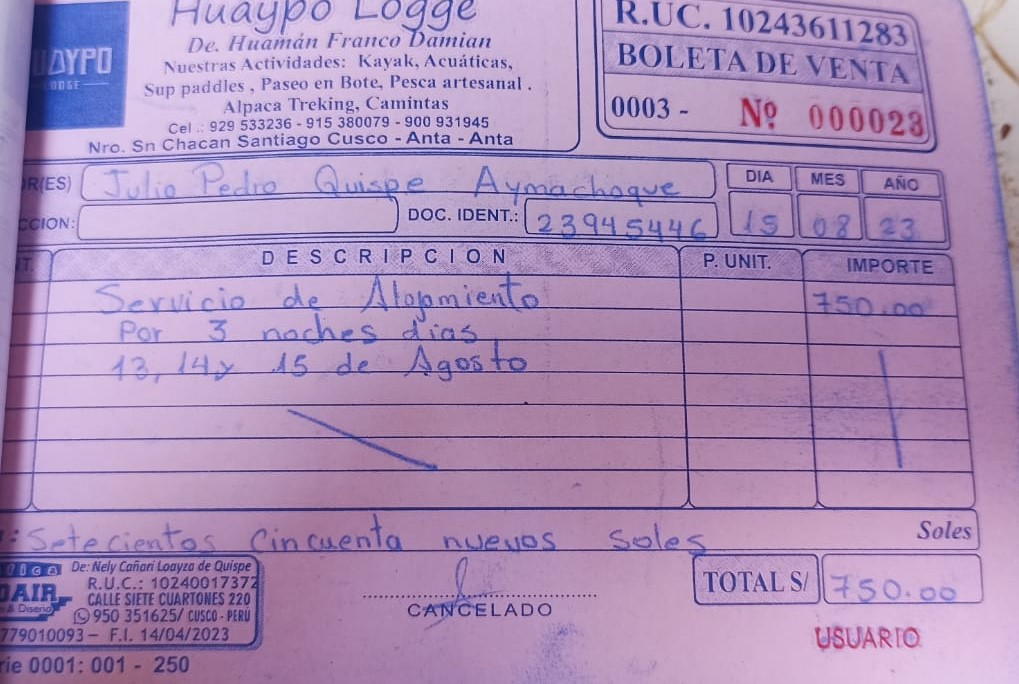 Huaypo Logge
De. Huamán Franco Damian
Nuestras Actividades: Kayak, Acuáticas,
Sup paddles , Paseo en Bote, Pesca artesanal .
Alpaca Treking, Camintas
Cel .: 929 533236 - 915 380079 - 900 931945
Nro. Sn Chacan Santiago Cusco - Anta - Anta
UAYPO
ODGE
R.UC. 10243611283
BOLETA DE VENTA
0003 - Nº 000023
R(ES) Julio Pedro Quispe Aymachoque
CCION: DOC. IDENT.: 23945446
DIA MES AÑO
15 08 23
T. DESCRIPCION P. UNIT. IMPORTE
Servicio de Alojamiento 750.00
Por 3 noches dias
13, 14 y 15 de Agosto
: Setecientos Cincuenta nuevos soles Soles
De: Nely Cañari Loayza de Quispe
R.U.C.: 10240017372
CALLE SIETE CUARTONES 220
950 351625/ CUSCO - PERÚ
779010093 - F.I. 14/04/2023
rie 0001: 001 - 250
AIR
& Diseño
CANCELADO
TOTAL S/ 750.00
USUARIO